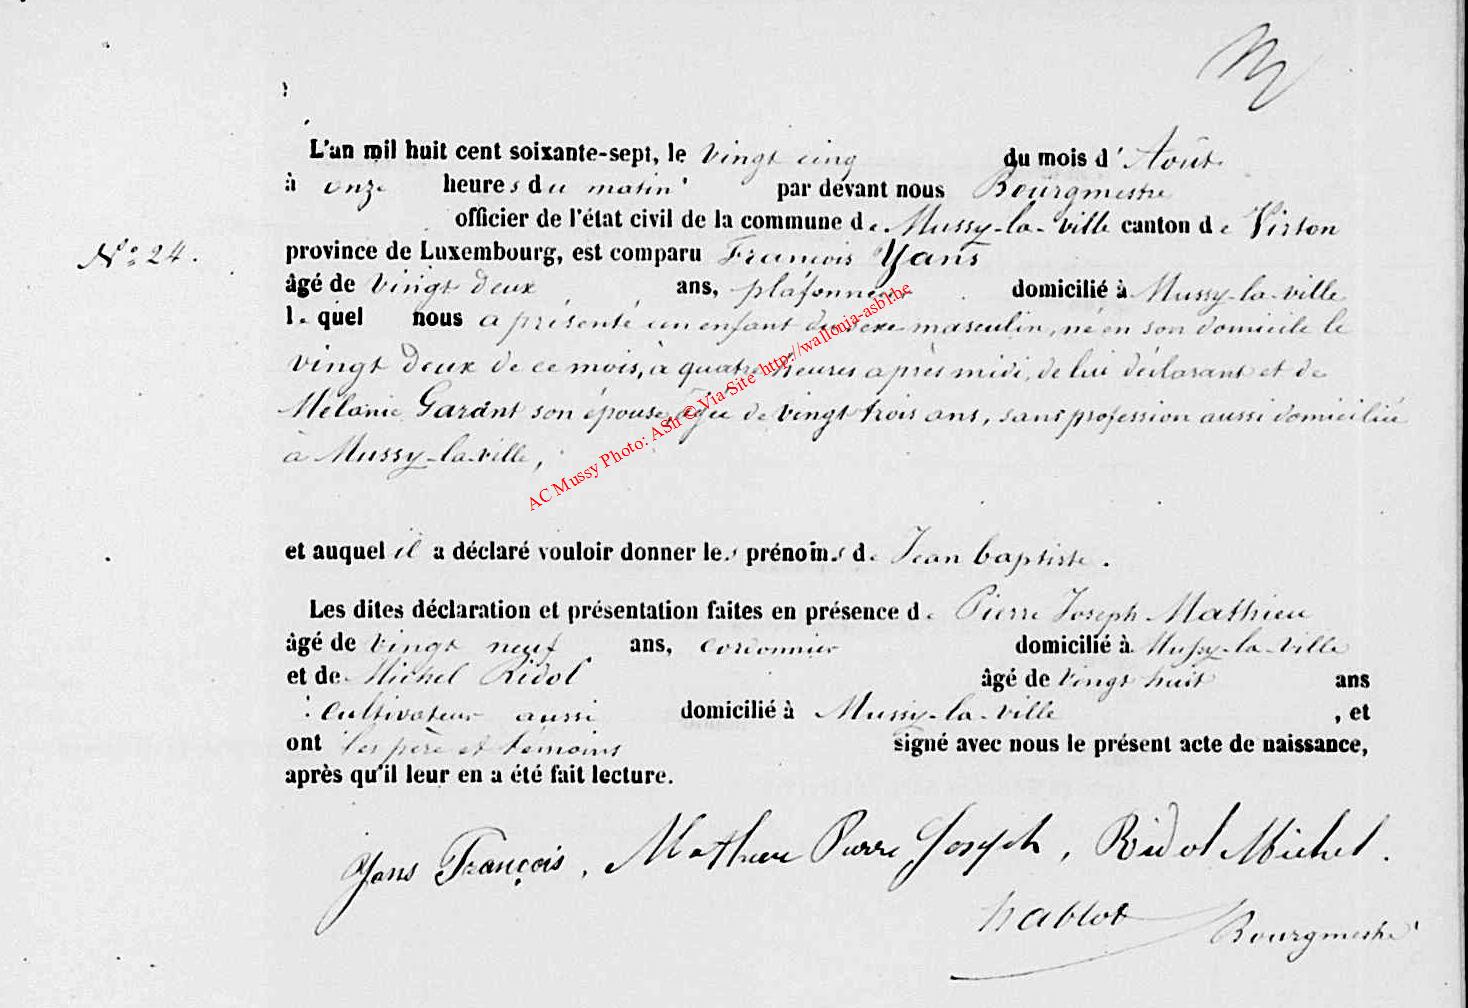 L'an mil huit cent soixante-sept, le vingt cinq du mois d'Août
à onze heures du matin par devant nous Bourgmestre
officier de l'état civil de la commune de Mussy-la-ville canton de Virton
N° 24.
province de Luxembourg, est comparu François Yans
âgé de vingt deux ans, plafonneur domicilié à Mussy-la-ville
lequel nous a présenté un enfant du sexe masculin, né en son domicile le
vingt deux de ce mois, à quatre heures après midi, de lui déclarant et de
Mélanie Garant son épouse, âgée de vingt trois ans, sans profession aussi domiciliée
à Mussy-la-ville,
AC Mussy Photo: ASR © Via Site http://wallonia-asbl.be
et auquel il a déclaré vouloir donner les prénoms de Jean baptiste.
Les dites déclaration et présentation faites en présence de Pierre Joseph Mathieu
âgé de vingt neuf ans, cordonnier domicilié à Mussy-la-ville
et de Michel Ridol âgé de vingt huit ans
cultivateur aussi domicilié à Mussy-la-ville, et
ont les père et témoins signé avec nous le présent acte de naissance,
après qu'il leur en a été fait lecture.
Yans François, Mathieu Pierre Joseph, Ridol Michel.
nablot Bourgmestre